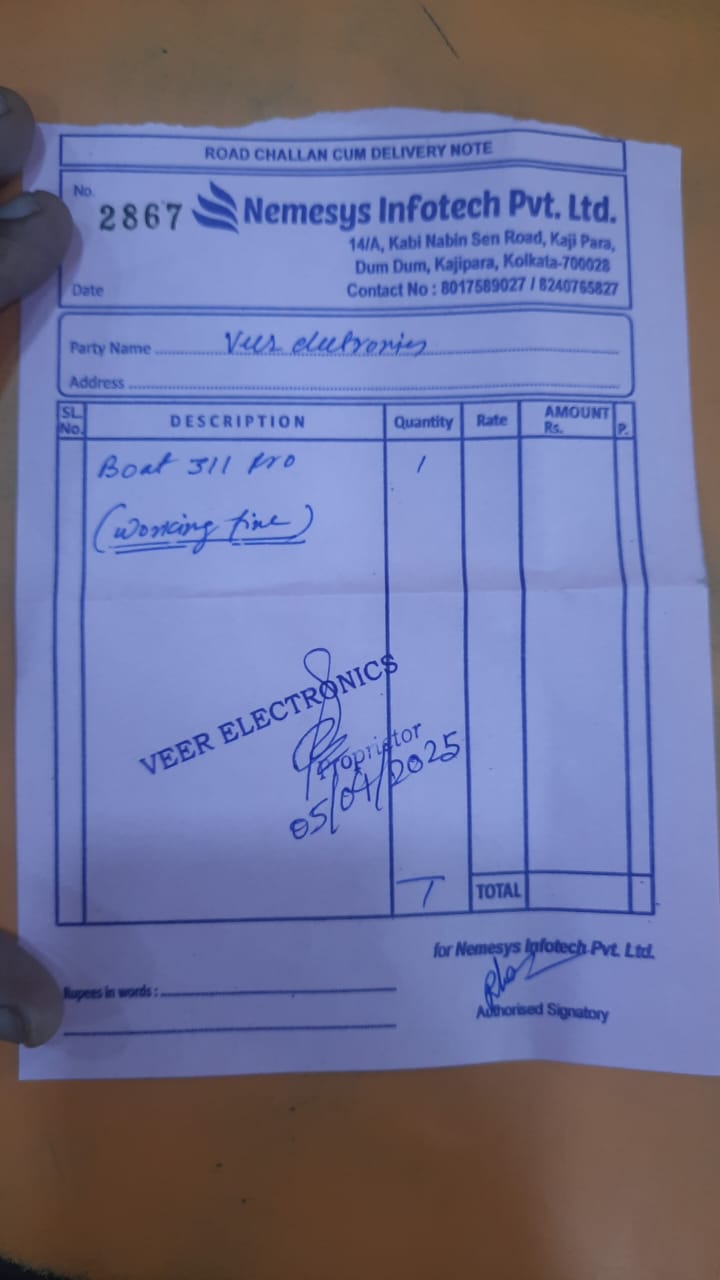 ROAD CHALLAN CUM DELIVERY NOTE
No. 2867
Nemesys Infotech Pvt. Ltd.
14/A, Kabi Nabin Sen Road, Kaji Para,
Dum Dum, Kajipara, Kolkata-700028
Date
Contact No : 8017589027 / 8240765827
Party Name Veer electronics
Address
SL. No. DESCRIPTION Quantity Rate AMOUNT Rs. P.
Boat 311 Pro 1
(Working fine)
VEER ELECTRONICS
Proprietor
05/04/2025
1 TOTAL
for Nemesys Infotech Pvt. Ltd.
Rupees in words :
Authorised Signatory